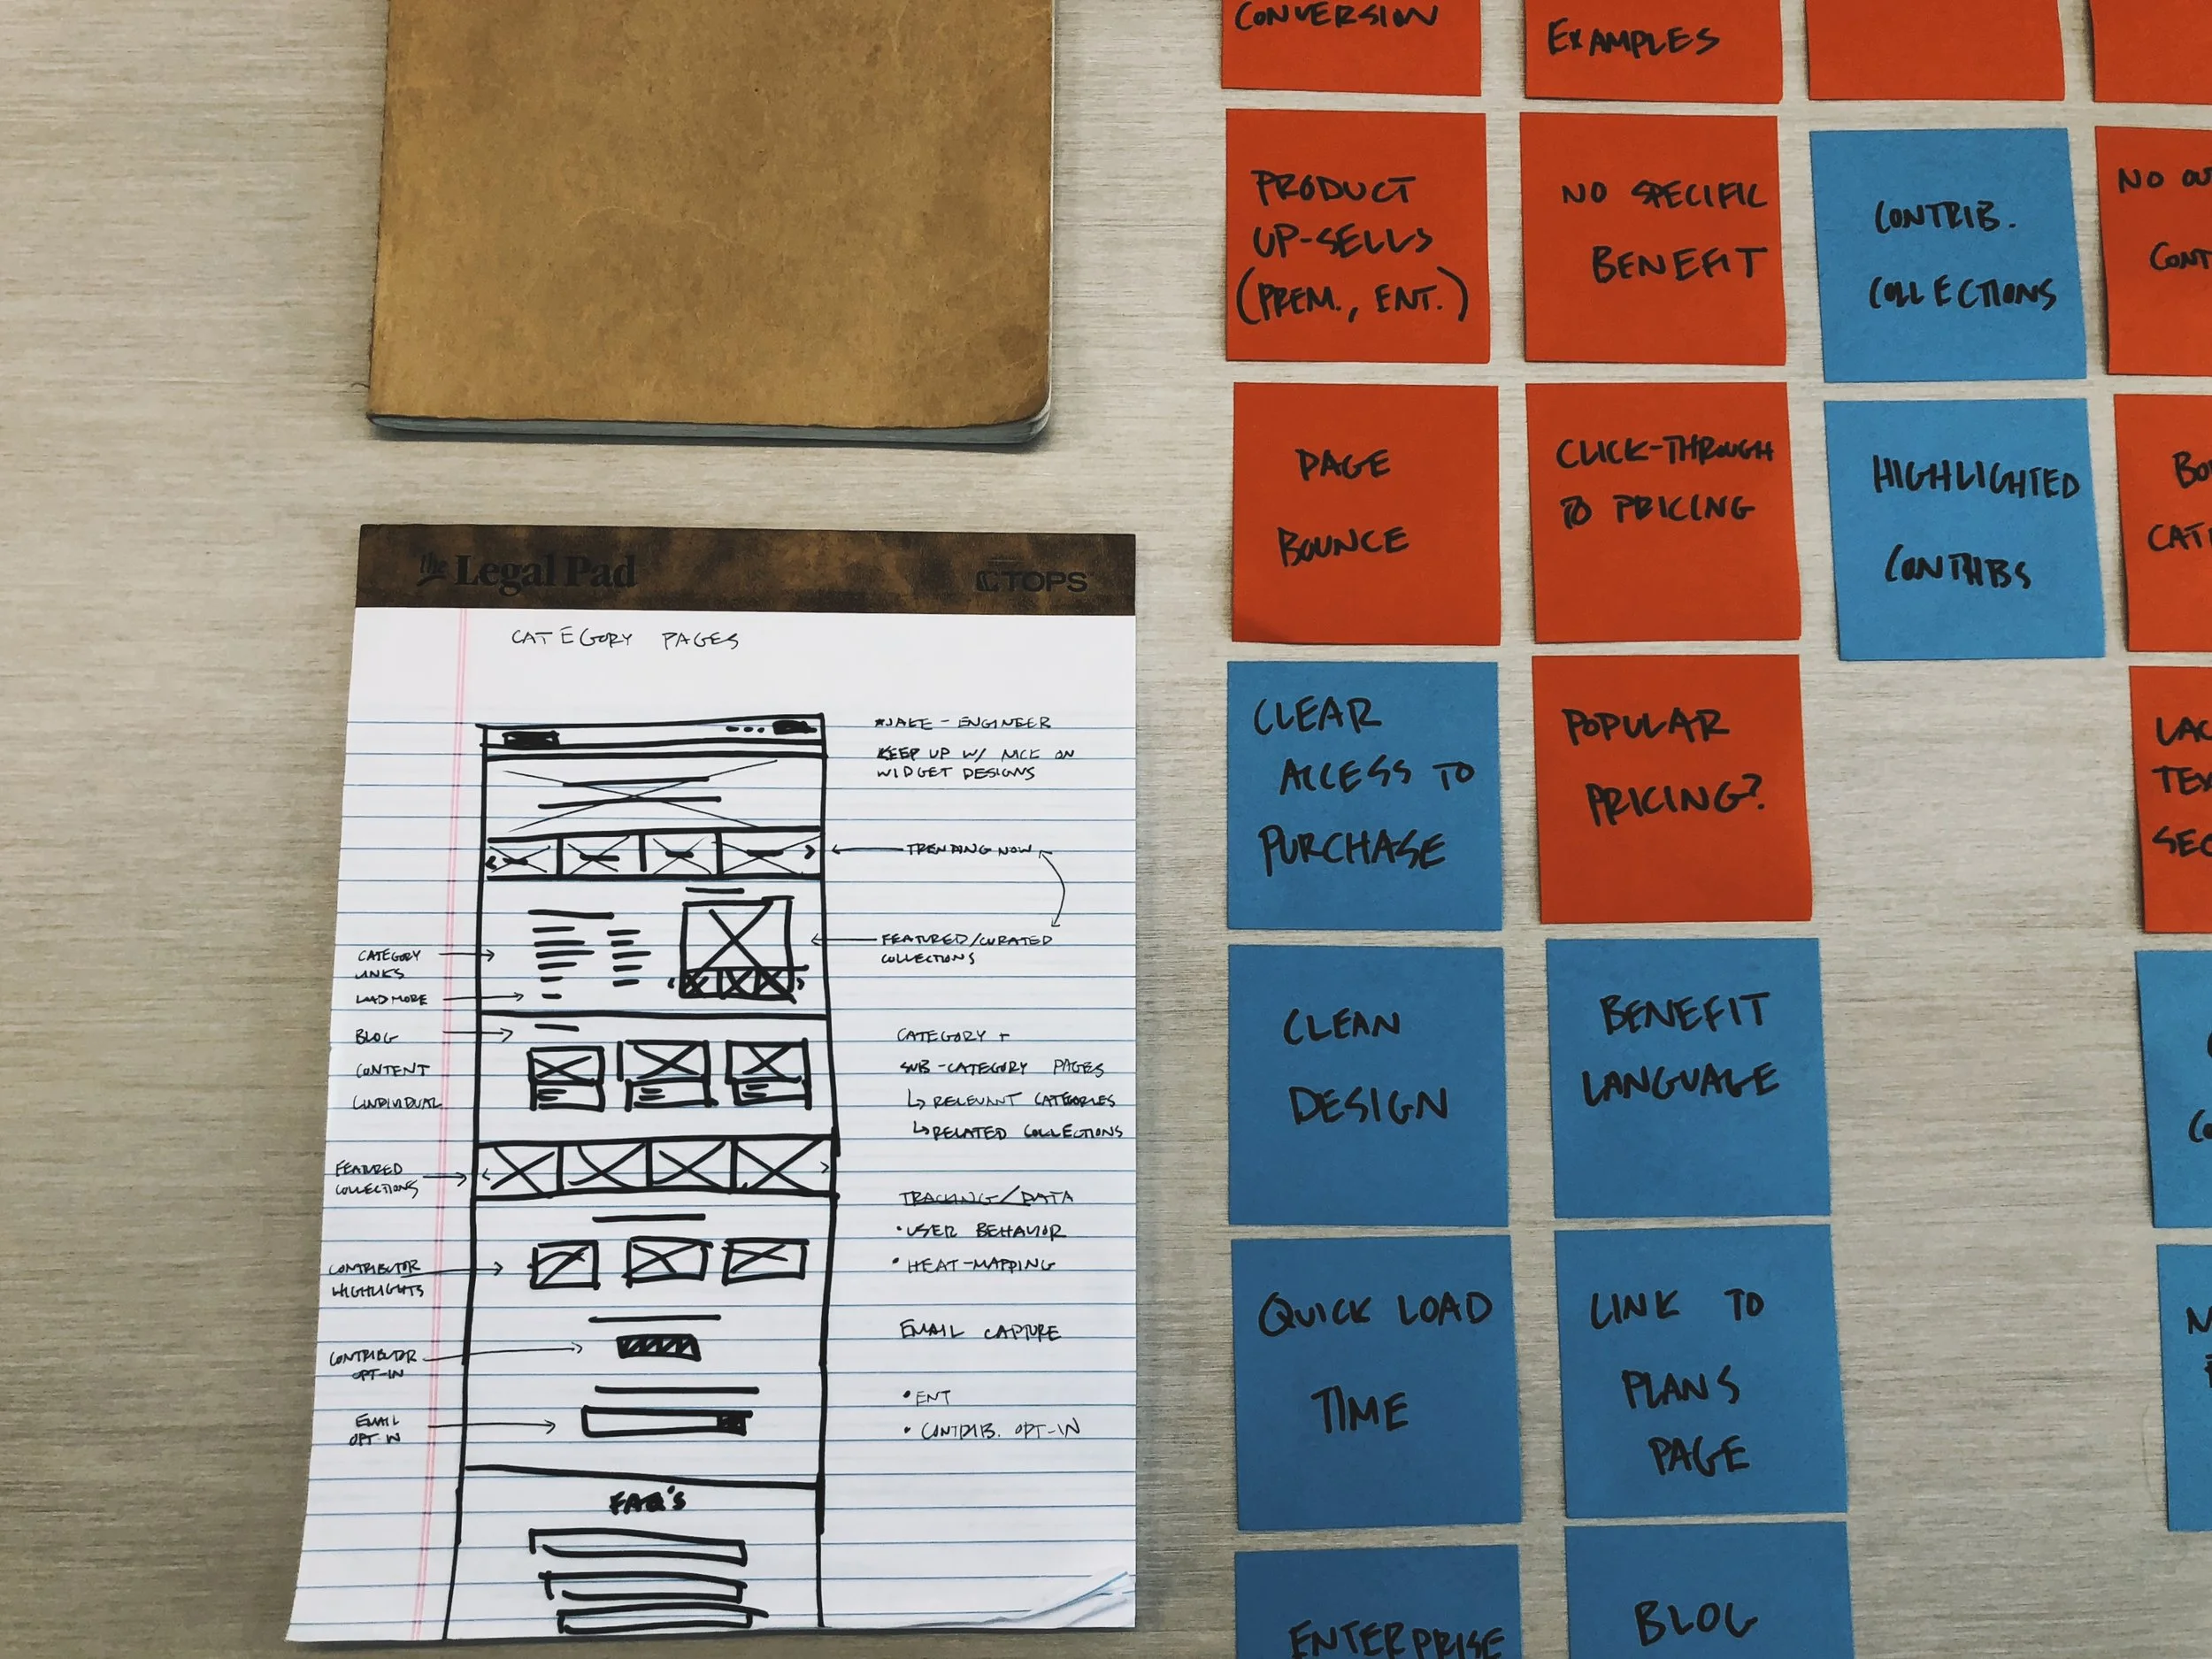 the Legal Pad
TOPS
CATEGORY PAGES
*JAKE - ENGINEER
KEEP UP W/ NICK ON
WIDGET DESIGNS
TRENDING NOW
FEATURED/CURATED
COLLECTIONS
CATEGORY
LINKS
LOAD MORE
BLOG
CONTENT
FEATURED
COLLECTIONS
CONTRIBUTOR
HIGHLIGHTS
CONTRIBUTOR
OPT-IN
EMAIL
OPT-IN
CATEGORY +
SUB-CATEGORY PAGES
↳ RELEVANT CATEGORIES
↳ RELATED COLLECTIONS
TRACKING/DATA
• USER BEHAVIOR
• HEAT-MAPPING
EMAIL CAPTURE
• ENT
• CONTRIB. OPT-IN
FAQ'S
CONVERSION
PRODUCT
UP-SELLS
(PREM., ENT.)
PAGE
BOUNCE
CLEAR
ACCESS TO
PURCHASE
CLEAN
DESIGN
QUICK LOAD
TIME
ENTERPRISE
EXAMPLES
NO SPECIFIC
BENEFIT
CLICK-THROUGH
TO PRICING
POPULAR
PRICING?
BENEFIT
LANGUAGE
LINK TO
PLANS
PAGE
BLOG
CONTRIB.
COLLECTIONS
HIGHLIGHTED
CONTRIBS
NO